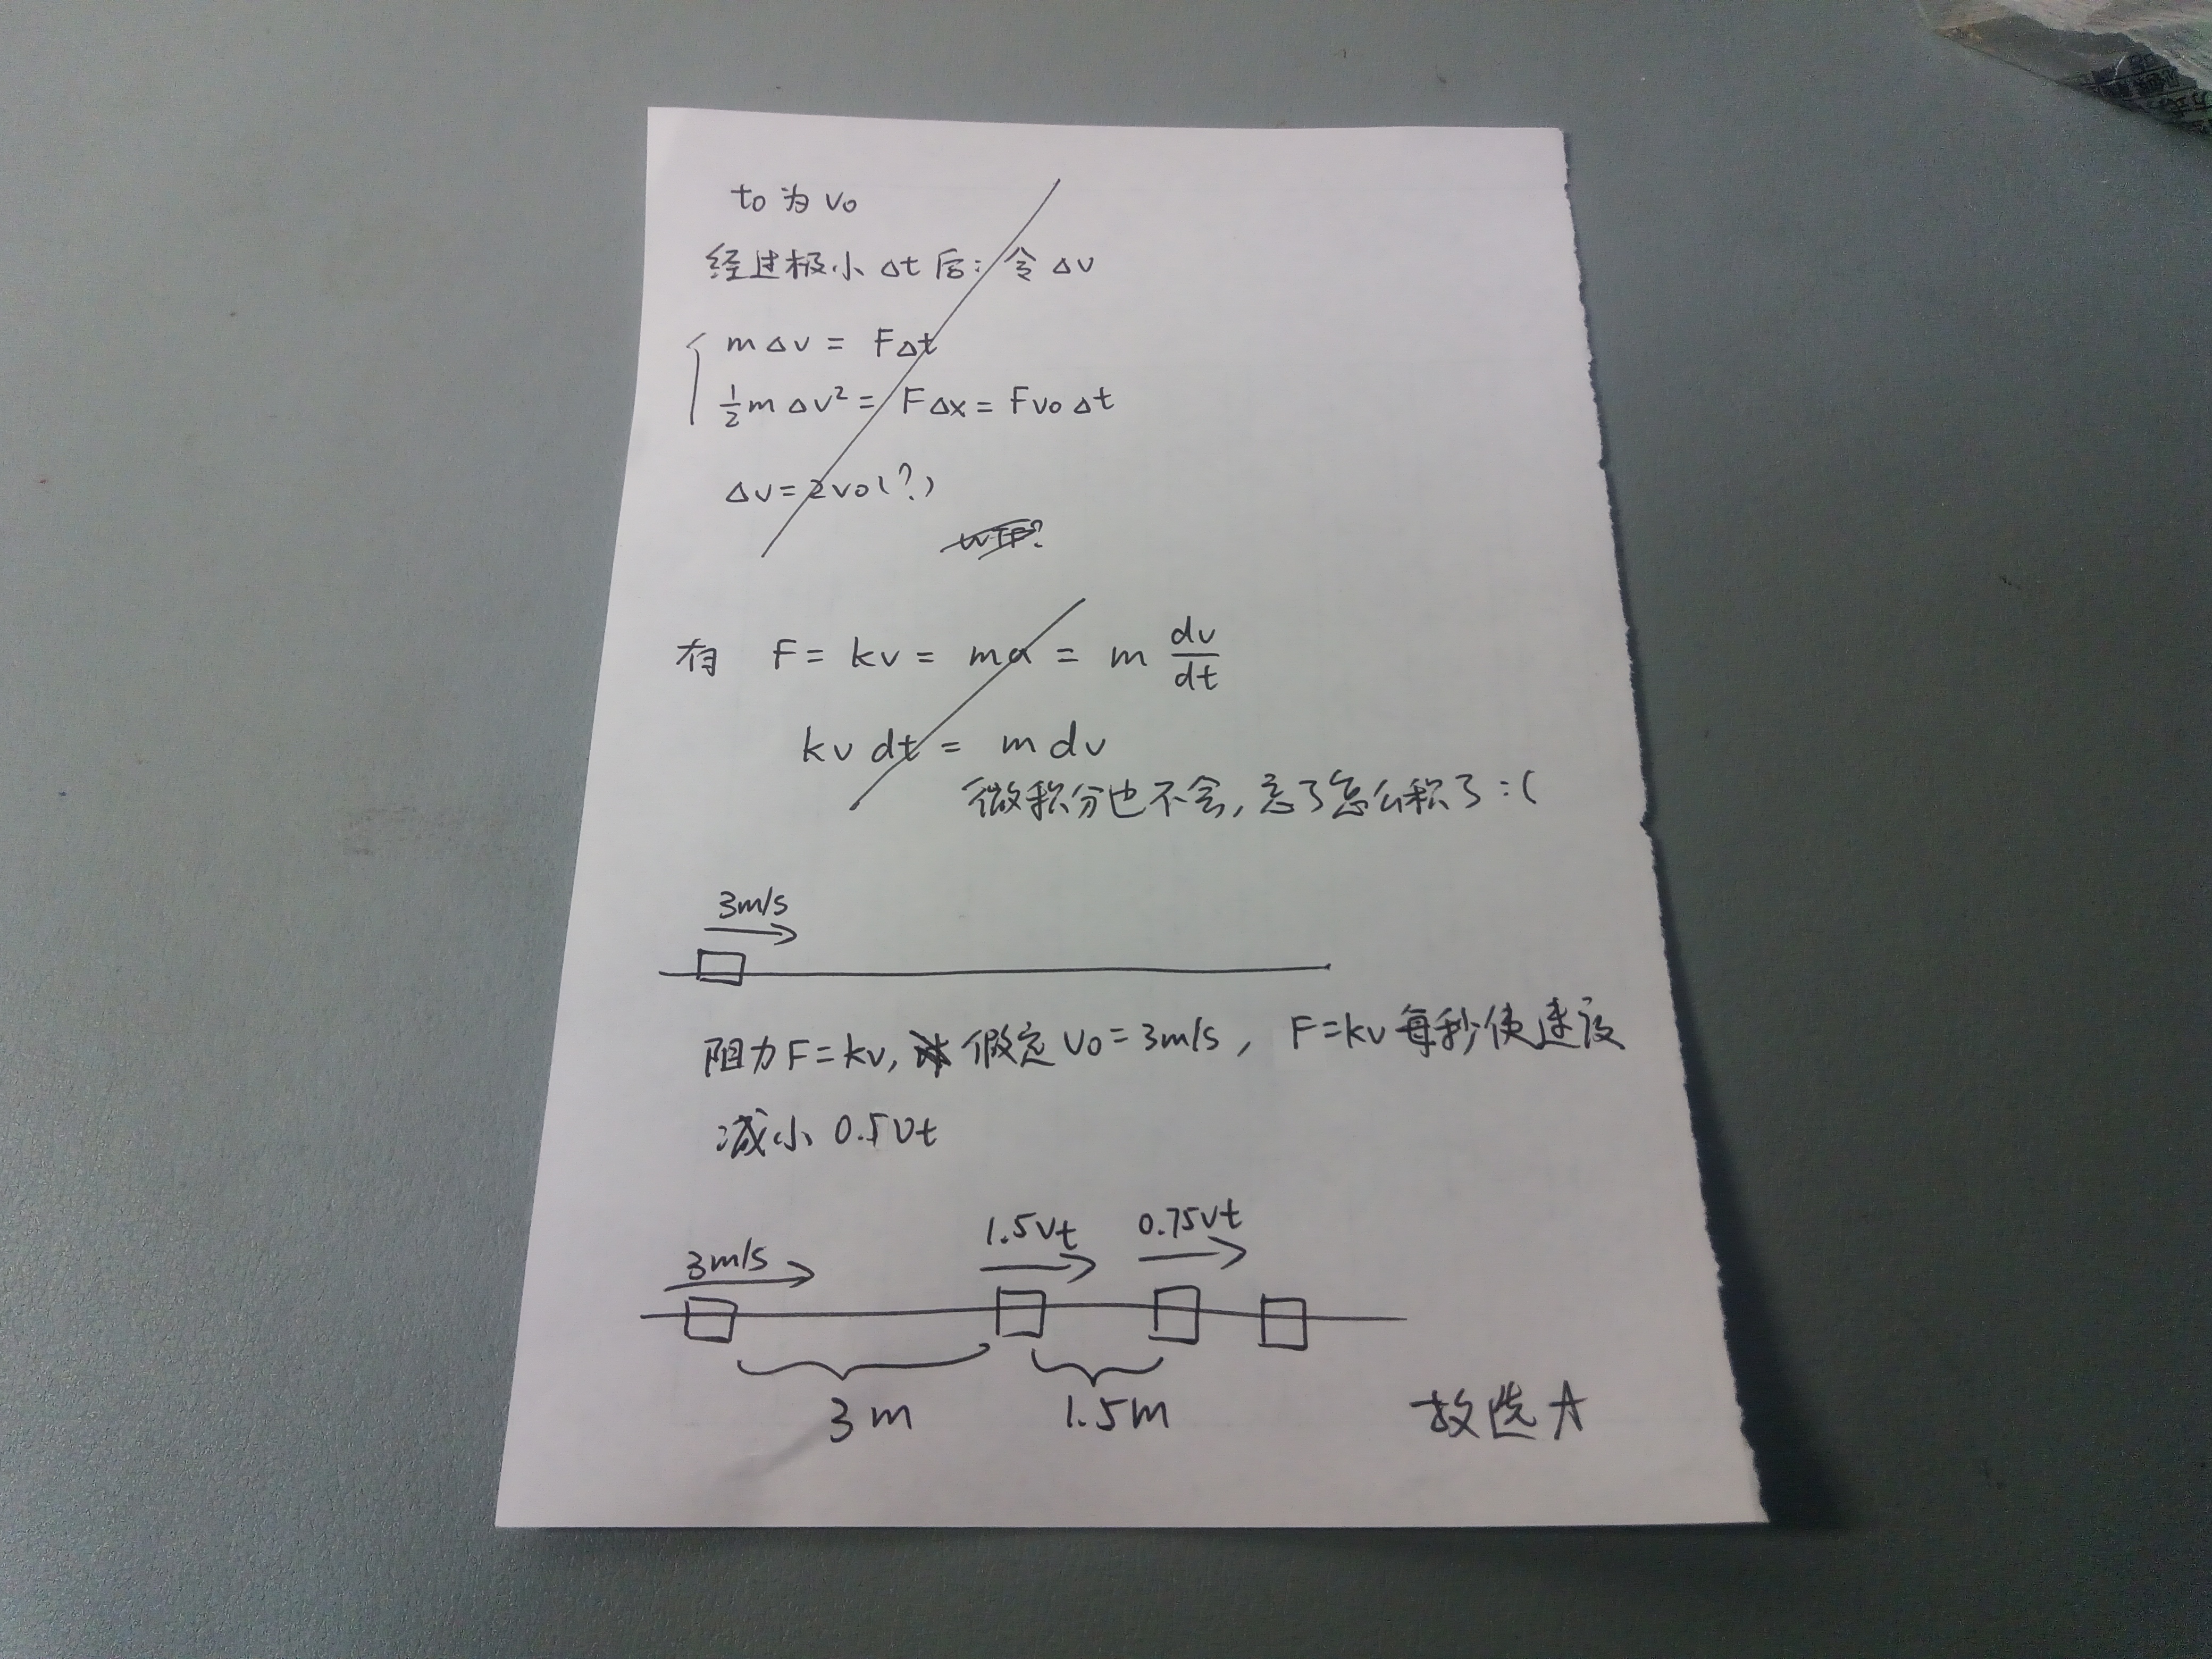 t₀ 为 v₀
经过极小 Δt 后: 令 Δv
mΔv = FΔt
½mΔv² = FΔx = Fv₀Δt
Δv = 2v₀(?)
有 F = kv = ma = m dv/dt
kv dt = m dv
微积分也不会, 忘了怎么积了 :(
3m/s
阻力F=kv, 假定 v₀=3m/s, F=kv 每秒使速度
减小 0.5vt
3m/s 1.5vt 0.75vt
3m 1.5m
故选A